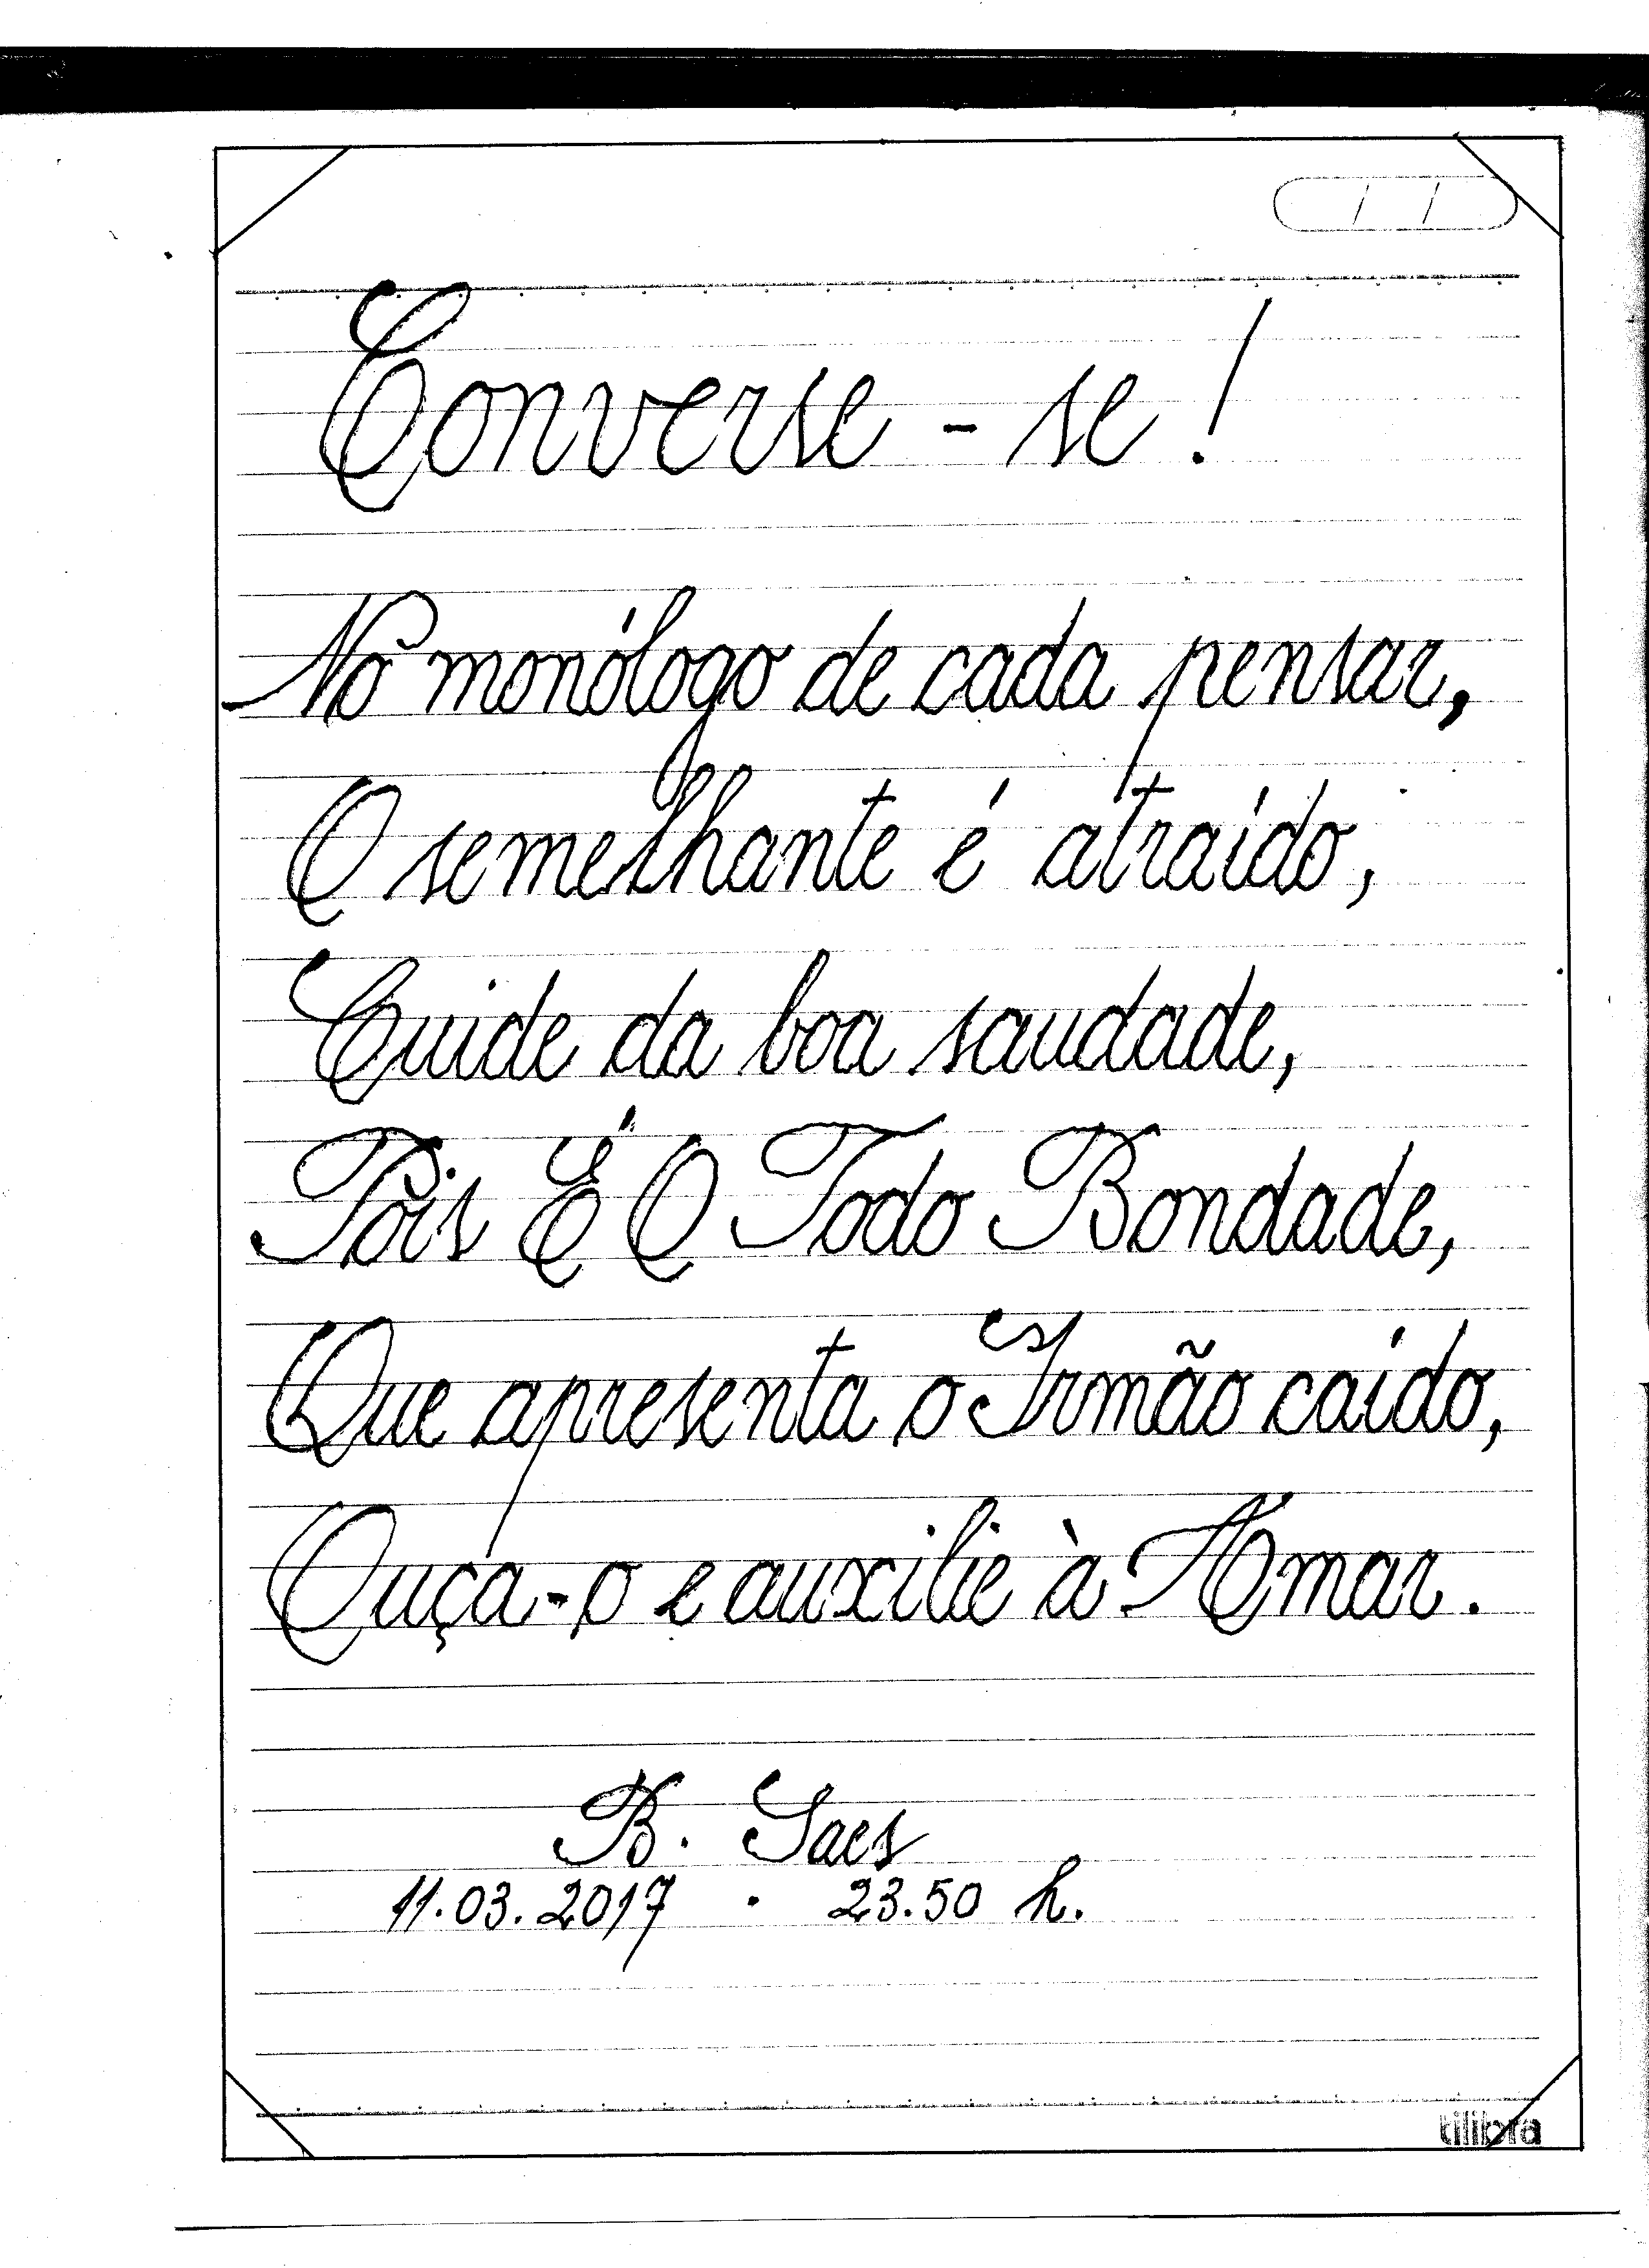 Converse-se!
No monólogo de cada pensar,
O semelhante é atraído,
Cuide da boa saudade,
Pois É O Todo Bondade,
Que apresenta o Irmão caído,
Ouça-o e auxilie à Amar.
B. Saes
11.03.2017 · 23.50 h.
tilibra